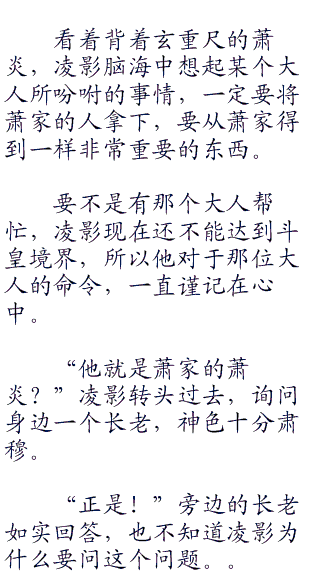 看着背着玄重尺的萧
炎，凌影脑海中想起某个大
人所吩咐的事情，一定要将
萧家的人拿下，要从萧家得
到一样非常重要的东西。
要不是有那个大人帮
忙，凌影现在还不能达到斗
皇境界，所以他对于那位大
人的命令，一直谨记在心
中。
“他就是萧家的萧
炎？”凌影转头过去，询问
身边一个长老，神色十分肃
穆。
“正是！”旁边的长老
如实回答，也不知道凌影为
什么要问这个问题。。